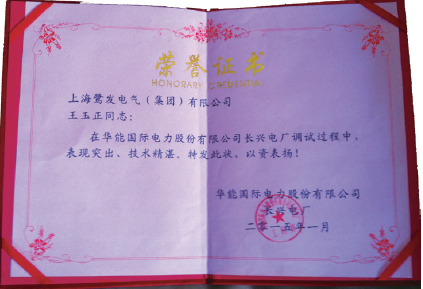 荣誉证书
HONORARY CREDENTIAL
上海鹭发电气（集团）有限公司
王玉正同志：
在华能国际电力股份有限公司长兴电厂调试过程中，
表现突出、技术精湛。特发此状，以资表扬！
华能国际电力股份有限公司
长兴电厂
二零一五年一月